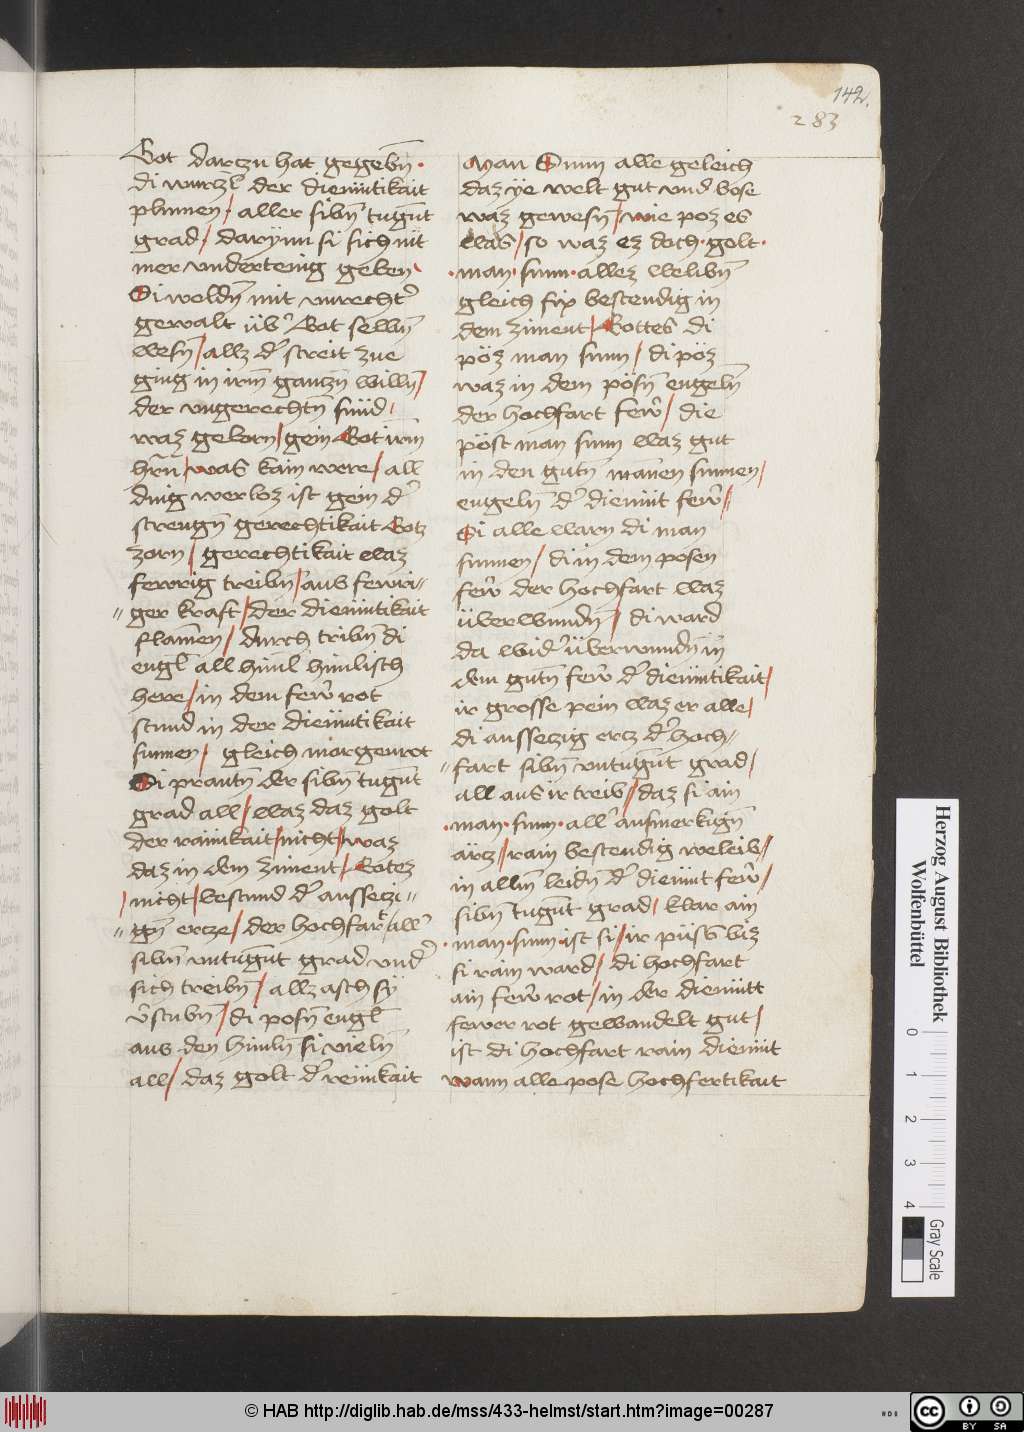 142.
283
Got darczu hat gegebn̄ ·
di wurczl̄ der diemütikait
plumen / aller sibn̄ tugn̄t
grad / darÿnn si sich nit
mer vndertenig geben
Si woldn̄ mit vnrecht᷑
gewalt üb᷑ Got selbn̄
wesn̄ / allz d᷑ streit zue
ging in irm̄ ganczn̄ willn̄ /
der vngerechtn̄ sünd /
waz geborn / gein Got irm̄
hr̄n / was kain were / all
ding werloz ist gein d᷑
strengn̄ gerechtikait Gotz
zorn / gerechtikait waz
fewrig treibn̄ / aus fewri〃
〃ger kraft / der diemütikait
flamen / durch tribn̄ di
engl̄ all himl̄ himlisch
here / in dem few᷑ rot
stund in der diemütikait
sunnen / gleich morgenrot
Di prantn̄ der sibn̄ tugn̄t
grad all / waz daz golt
der rainikait / nicht / waz
daz in dem ziment / Gotez
/ nicht / bestund d᷑ aussetzi〃
〃gn̄ ercze / der hochfart / all᷑
sibn̄ vntugn̄t grad vnd᷑
sich treibn̄ / allz asch sÿ
v᷑stubn̄ / di posn̄ engl̄
aus den himln̄ si vieln̄
all / daz golt d᷑ reinikait
Man Sunn alle geleich
daz ÿe welt gut vnd bose
waz gewesn̄ / wie poz es
was / so waz ez doch · golt ·
· man · sunn · allez belibn̄
gleich fix bestendig in
dem ziment / Gottes di
pöz man sunn / di pöz
waz in dem pösn̄ engeln̄
der hochfart few᷑ / die
pöst man sunn waz gut
in den gutn̄ manen sunnen /
engeln̄ d᷑ diemut few᷑ //
Si alle warn di man
sunnen / di in dem posen
few᷑ der hochfart waz
überwundn̄ / di ward
da wid᷑ überwundn̄ in
dem gutn̄ few᷑ d᷑ diemütikait /
ir grosse pein waz er alle /
di aussetzig ercz d᷑ hoch〃
〃fart sibn̄ vntugn̄t grad /
all aus ir treib // daz si ain
· man · sunn · all᷑ ausmerkign̄
ärcz // rain bestendig weleib //
in alln̄ leidn̄ d᷑ diemut few᷑ /
sibn̄ tugn̄t grad / klar ain
· man · sunn · ist si / ir püss biz
si rain ward / di hochfart
ain few᷑ rot / in der diemütt
fewer rot gewandelt gut /
ist di hochfart rain diemüt
wann alle pose hochfertikait
Herzog August Bibliothek
Wolfenbüttel
0 1 2 3 4
Gray Scale
© HAB http://diglib.hab.de/mss/433-helmst/start.htm?image=00287
HAB
cc BY SA